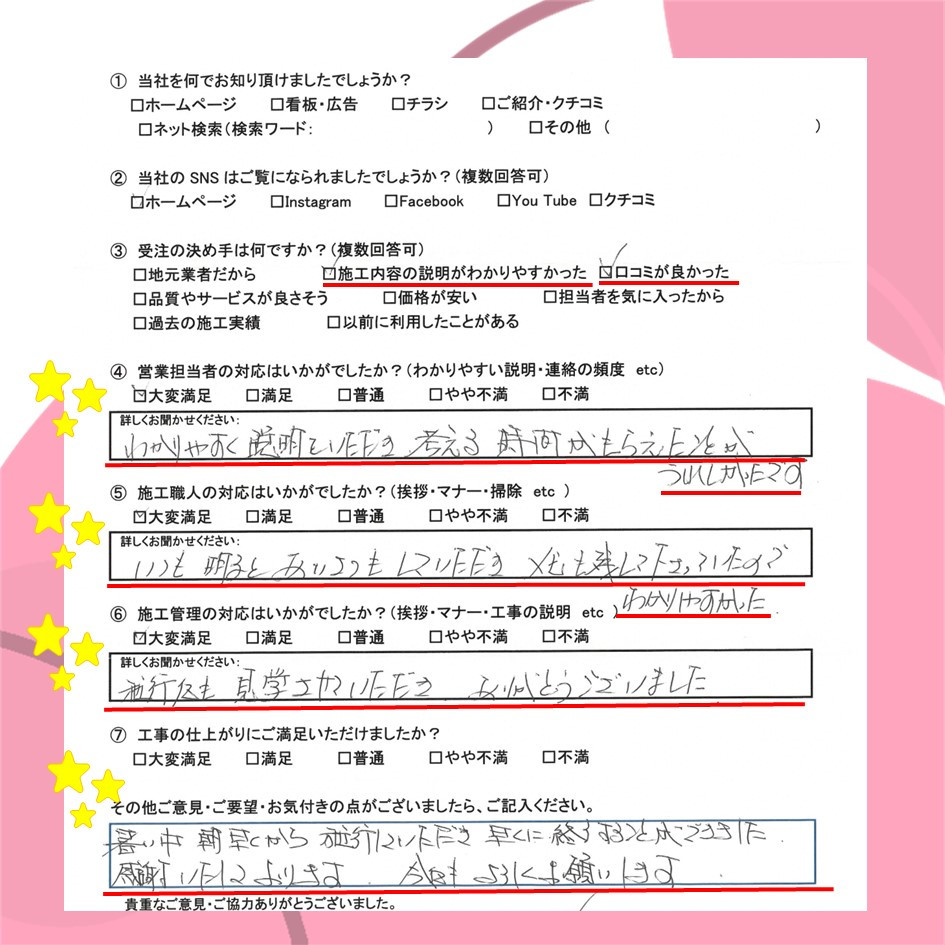 ① 当社を何でお知り頂けましたでしょうか？
□ホームページ □看板・広告 □チラシ □ご紹介・クチコミ
□ネット検索（検索ワード： ） □その他 （ ）
② 当社の SNS はご覧になられましたでしょうか？（複数回答可）
□ホームページ □Instagram □Facebook □You Tube □クチコミ
③ 受注の決め手は何ですか？（複数回答可）
□地元業者だから ☑施工内容の説明がわかりやすかった ☑口コミが良かった
□品質やサービスが良さそう □価格が安い □担当者を気に入ったから
□過去の施工実績 □以前に利用したことがある
④ 営業担当者の対応はいかがでしたか？（わかりやすい説明・連絡の頻度 etc）
☑大変満足 □満足 □普通 □やや不満 □不満
詳しくお聞かせください：
わかりやすく説明していただき 考える時間がもらえたことが
うれしかったです
⑤ 施工職人の対応はいかがでしたか？（挨拶・マナー・掃除 etc ）
☑大変満足 □満足 □普通 □やや不満 □不満
詳しくお聞かせください：
いつも 明るく あいさつもしていただき メモも残して下さっていたので
わかりやすかった
⑥ 施工管理の対応はいかがでしたか？（挨拶・マナー・工事の説明 etc ）
☑大変満足 □満足 □普通 □やや不満 □不満
詳しくお聞かせください：
施行後も 見学させていただき ありがとうございました
⑦ 工事の仕上がりにご満足いただけましたか？
□大変満足 □満足 □普通 □やや不満 □不満
その他ご意見・ご要望・お気付きの点がございましたら、ご記入ください。
暑い中 朝早くから 施行していただき 早くに 終了することができました
感謝いたしております 今後も よろしくお願いします
貴重なご意見・ご協力ありがとうございました。